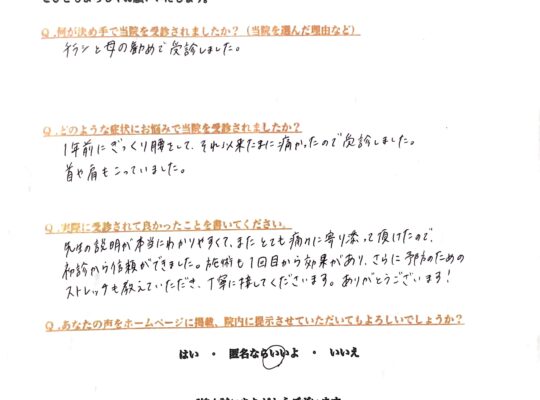 Q.何が決め手で当院を受診されましたか？（当院を選んだ理由など）
チラシと母の勧めで受診しました。
Q.どのような症状にお悩みで当院を受診されましたか？
1年前にぎっくり腰をして、それ以来たまに痛かったので受診しました。
首や肩もこっていました。
Q.実際に受診されて良かったことを書いてください。
先生の説明が本当にわかりやすくて、またとても痛みに寄り添って頂けたので、
初診から信頼ができました。施術も1回目から効果があり、さらに予防のための
ストレッチも教えていただき、丁寧に接してくださいます。ありがとうございます！
Q.あなたの声をホームページに掲載、院内に提示させていただいてもよろしいでしょうか？
はい ・ 匿名ならいいよ ・ いいえ